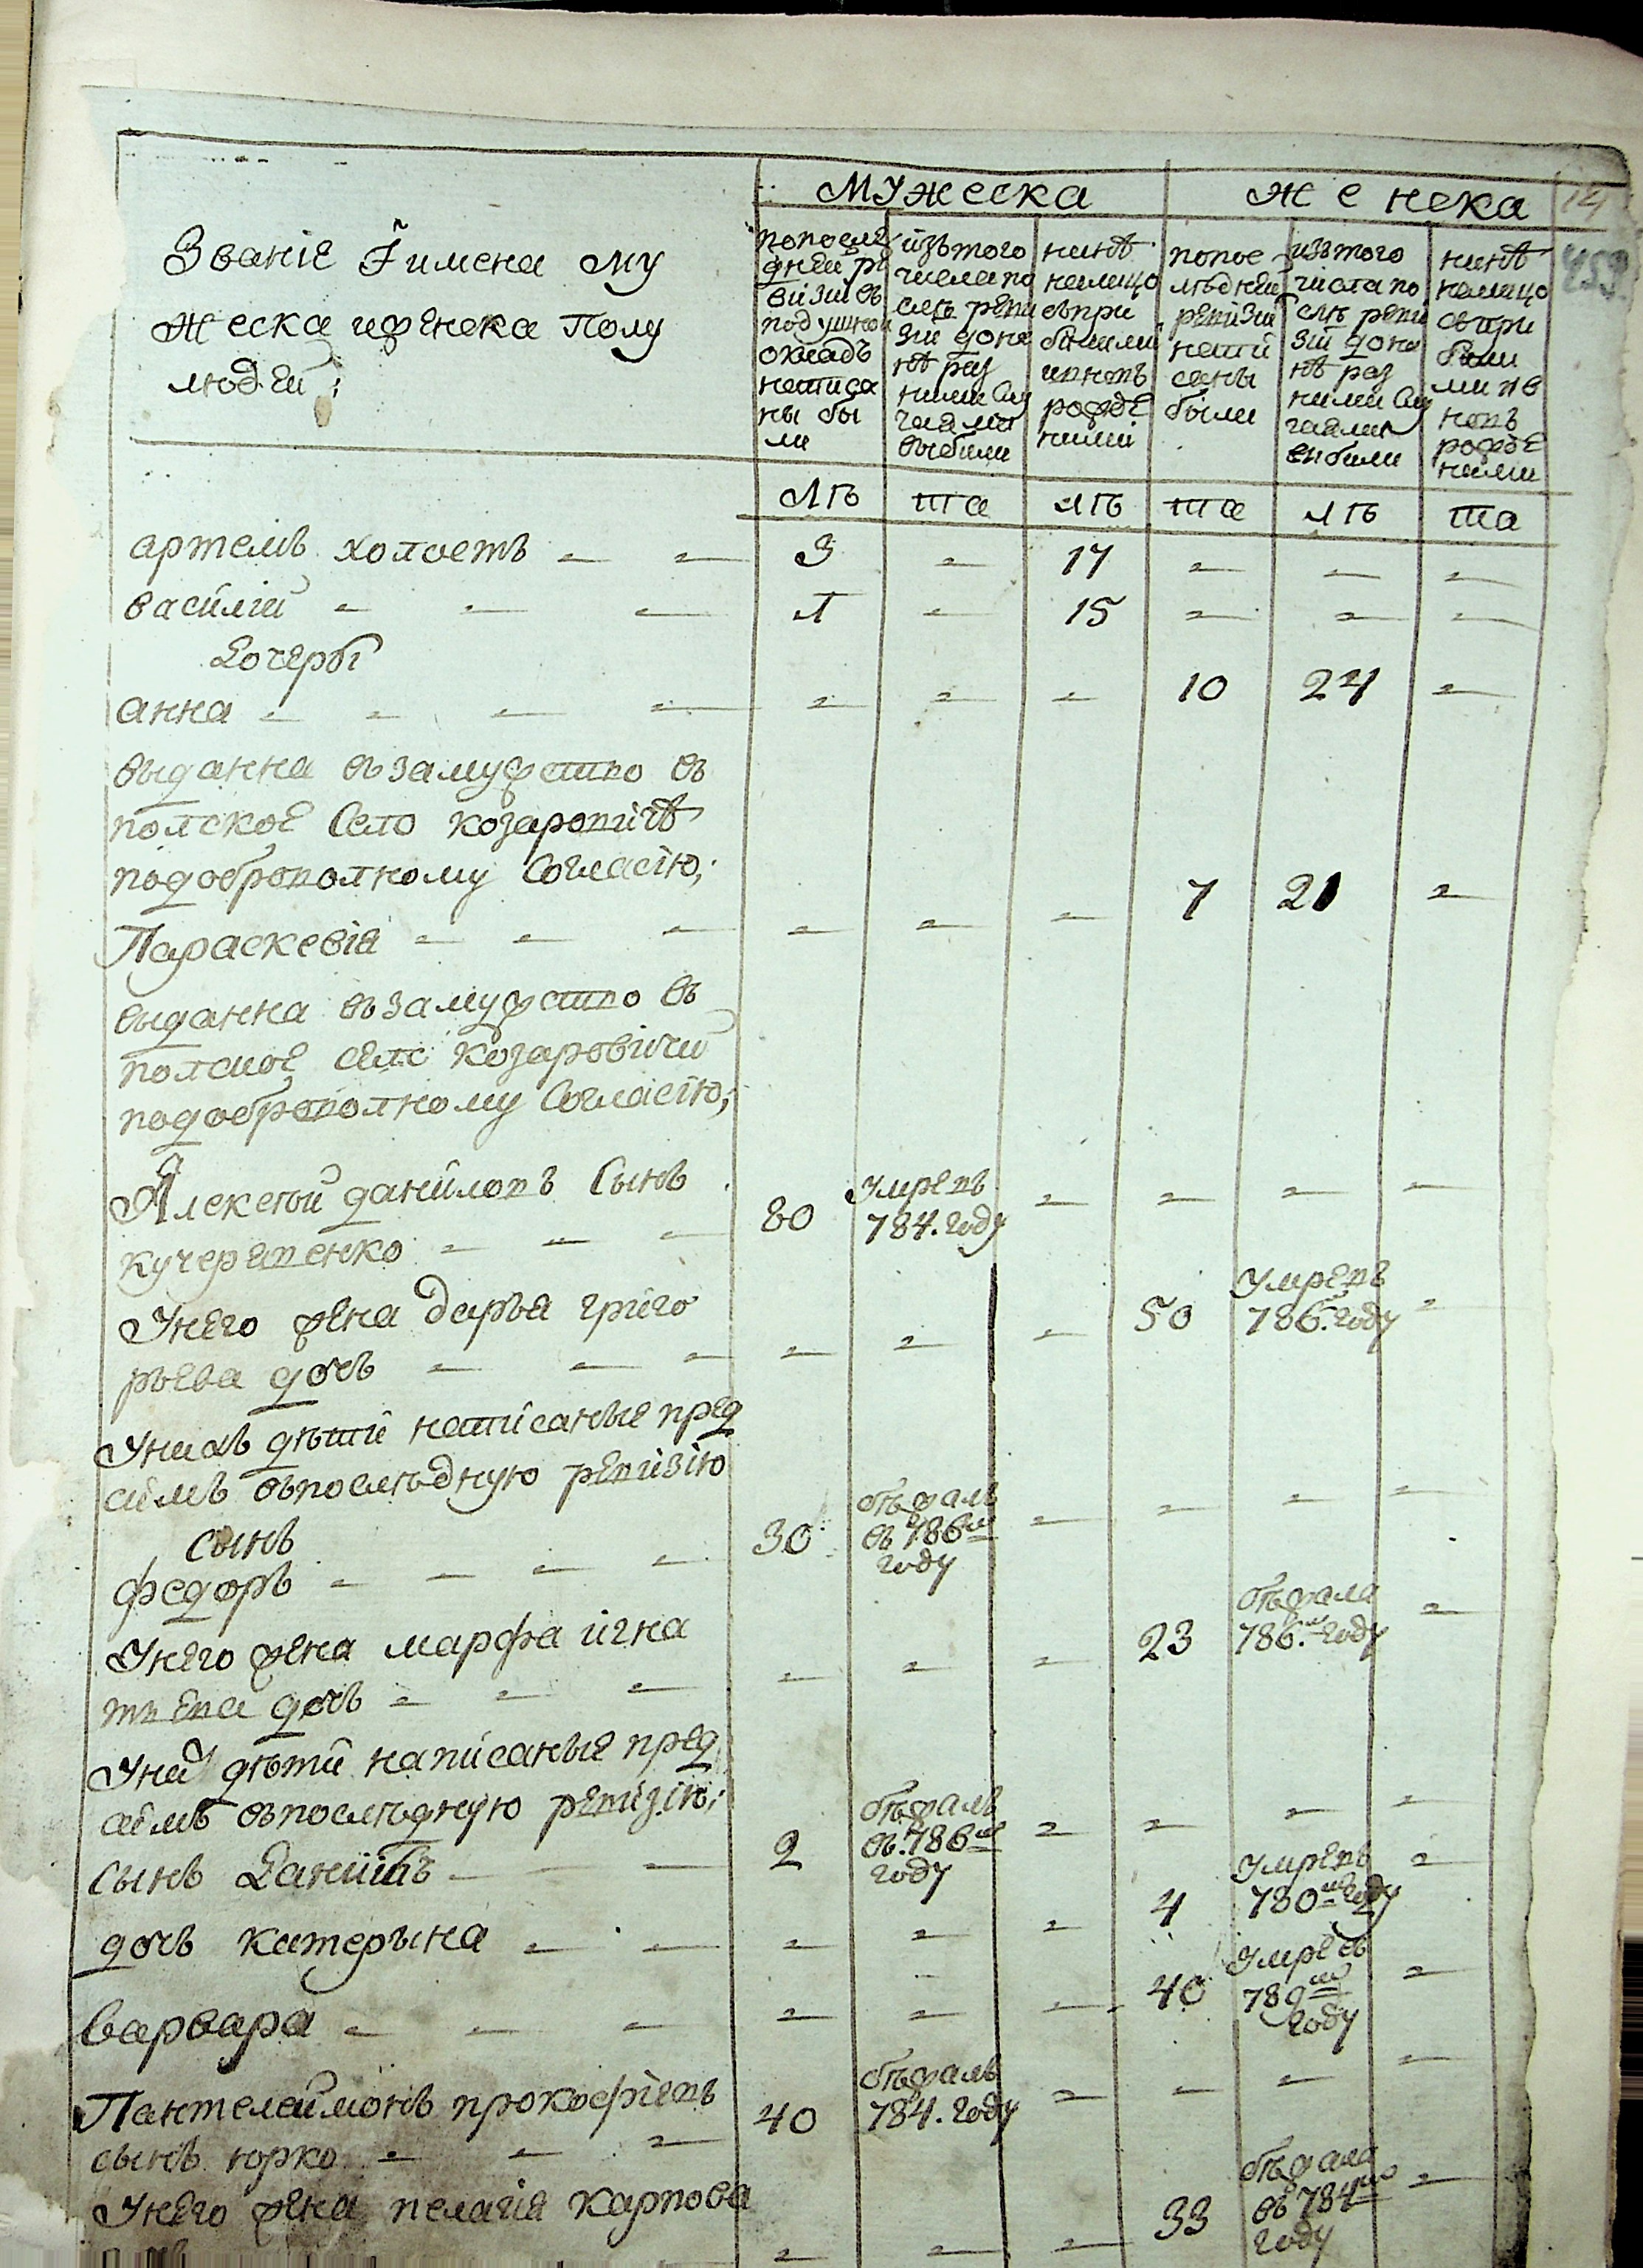 мужеска
женска
14
453
Званіе Ї имена му
жеска иженска полу
людей;
попосле
дней ре
визии въ
подушной
окладъ
написа
ны бы
ли
изътого
числа по
слѣ реви
зіи доны
нѣ раз
ними слу
чаями
выбыли
нинѣ
налицо
съпри
былими
ивновь
рожде
ними
попос
лѣдней
ревизіи
напи
саны
были
изътого
числа по
слѣ реви
зіи доны
нѣ раз
ними слу
чаями
выбыли
нинѣ
налицо
съпри
былы
ми и в
новъ
рожде
ними
лѣ та лѣ та лѣ та
артемъ холостъ 3 17
василій 1 15
Дочеры
анна 10 24
выданна въ замужство въ
полское село козаровичѣ
подобровол­ному согласію;
Параскевія 7 21
выданна въ замужство въ
полское село козаровичи
подоброволному согласію;
Алексѣй данйловъ сынъ
кучерявенко 80 умревъ 784. году
Унего жена дарья григо
рьева дочь 50 умревъ 786. году
Унихъ дѣти написаные пред
симъ въпослѣдную ревизію
сынъ
федоръ 30 бѣжалъ въ 786м году
Унего жена марфа игна
тьева дочь 23 бѣжала 786.м году
Уний дѣти написаные пред
симъ въпослѣдную ревизію;
сынъ Данйлъ 2 бѣжалъ въ 786м году
дочь катерына 4 умревъ 780м году
варвара 40 умревъ 789м году
Пантелеймонъ прокофіевъ
сынъ юрко 40 бѣжалъ 784. году
Унего жена пелагія карпова 33 бѣжала въ 784мъ году